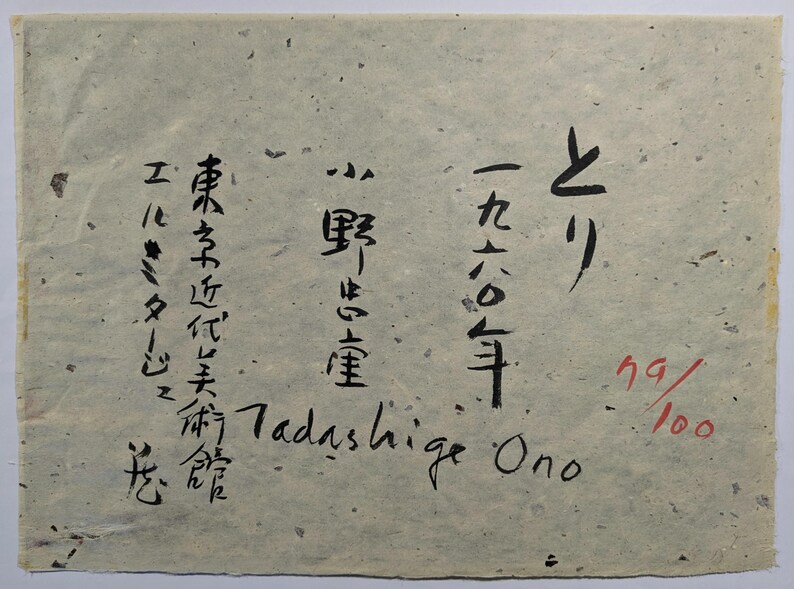 とり
一九六〇年
小野忠重
東京近代美術館
エルミタージュ
蔵
Tadashige Ono
79/100